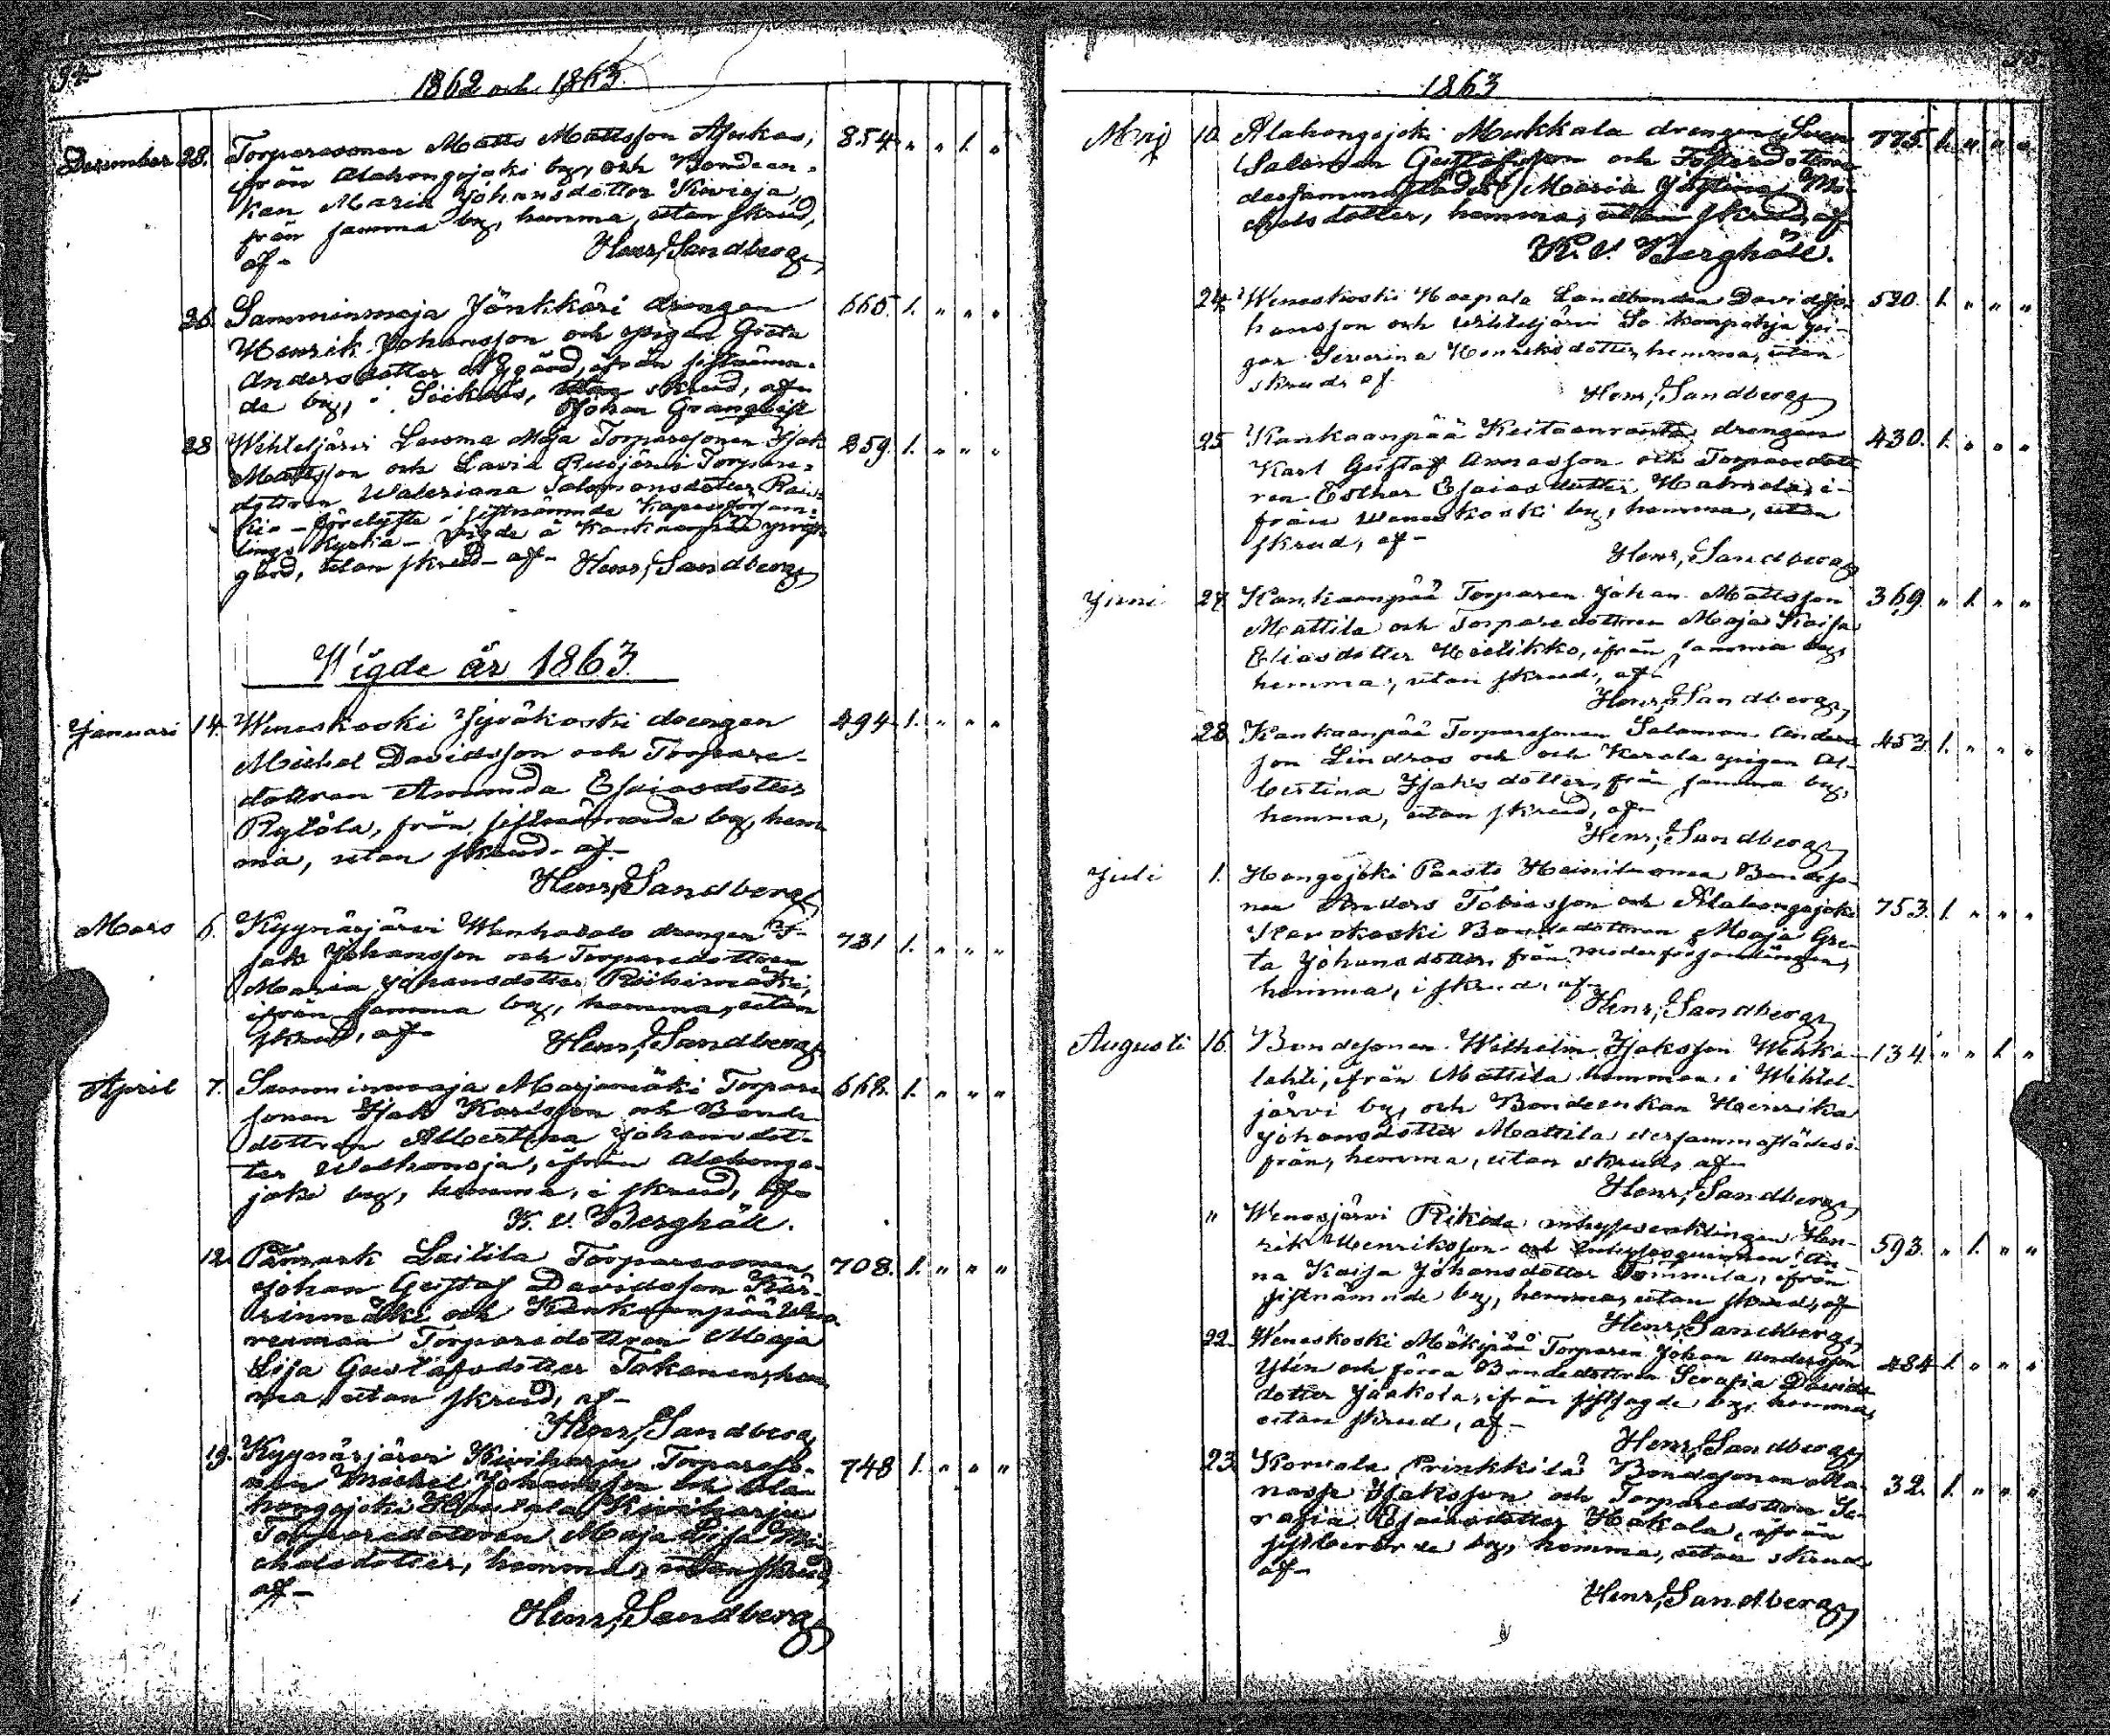 94
1862 och 1863.
December 28. Torparesonen Matts Mattsson
ifrån Alahongojoki by, och Bondeen-
kan Maria Johansdotter
från samma by, hemma, utan skrud,
af - Henr. Sandberg
854 " " 1. "
26. Samminmaja Jönkkäri drengen
Henrik Johansson och pigan Greta
Andersdotter ifrån sistnämn-
de by, i utan skrud, af
Johan Granqvist
665. 1. " " "
28 Wihteljärvi Luoma Maja Torparesonen Isak
Mattsson och Lavia Torpare-
dottren Waleriana Salomonsdotter
kia - i sistnämnde Kapellförsam-
lings Kyrka - Vigde å Kankaanpää prest
gård, utan skrud - af - Henr. Sandberg
259. 1. " " "
Wigde år 1863.
Januari 14. Weneskoski Jyräkoski drengen
Michel Davidsson och Torpare-
dottren Amanda Esaiasdotter
Rytöla, från sistnämnde by, hem-
ma, utan skrud - af -
Henr. Sandberg
494. 1. " " "
Mars 6. Kyynärjärvi drengen I-
sak Johansson och Torparedottren
Maria Johansdotter Riihimäki,
ifrån samma by, hemma, utan
skrud, af - Henr. Sandberg
731 1. " " "
April 7. Samminmaja Marjamäki Torpare
sonen Isak Karlsson och Bonde-
dottren Albertina Johansdot-
ter ifrån Alahongo-
joki by, hemma, i skrud, af
K. V. Berghäll.
668. 1. " " "
12. Påmark Laitila Torparesonen
Johan Gustaf Davidsson
och Kankaanpää
Torparedottren Maja
Lisa Gustafsdotter Takanen, hem
ma, utan skrud, af -
Henr. Sandberg
708. 1. " " "
19. Kyynärjärvi Kiviharju Torpareso-
nen Michel Johansson och Ala-
hongojoki Kiviharju
Torparedottren Maja Lisa Mi-
chelsdotter, hemma, utan skrud,
af -
Henr. Sandberg
748 1. " " "
1863
Maj 10. Alahongojoki Markkala drengen
Salomon Gustafsson och
dersammastädes Maria Mi-
chelsdotter, hemma, utan skrud, af
K. V. Berghäll.
775. 1. " " "
24. Weneskoski Haapala Landbonden David Jo-
hansson och Wihteljärvi pi-
gan Severina Henriksdotter, hemma, utan
skrud, af
Henr. Sandberg
520. 1. " " "
25 Kankaanpää Keitaanranta drengen
Karl Gustaf och Torparedott
ren Esther Esaiasdotter i-
från Weneskoski by, hemma, utan
skrud, af -
Henr. Sandberg
430. 1. " " "
Juni 27. Kankaanpää Torparen Johan Mattsson
Mattila och Torparedottren Maja Kaisa
Eliasdotter ifrån samma by,
hemma, utan skrud, af -
Henr. Sandberg
369. " 1. " "
28 Kankaanpää Torparesonen Salomon Anders
son Lindroos och Karola pigan Al-
bertina Isaksdotter, från samma by,
hemma, utan skrud, af -
Henr. Sandberg
453. 1. " " "
Juli 1. Hongojoki Paasto Heiniluoma Bondeso-
nen Anders Tobiasson och Alahongojoki
Bondedottren Maja Gre-
ta Johansdotter, från moderförsamlingen,
hemma, i skrud, af -
Henr. Sandberg
753. 1. " " "
Augusti 16. Bondesonen Wilhelm Isaksson
lahti, ifrån Mattila hemman i Wihtel-
järvi by, och Bondeenkan Heinrika
Johansdotter Mattila dersammastädes i-
från, hemma, utan skrud, af -
Henr. Sandberg
134 " " 1. "
" Wenesjärvi inhysesenklingen Hen-
rik Henriksson och inhysesqvinnan An-
na Kaisa Johansdotter Tommila, ifrån
sistnämnde by, hemma, utan skrud, af
Henr. Sandberg
593. " 1. " "
22. Weneskoski Mäkipää Torparen Johan Andersson
Ylen och förra Bondedottren Serafia Davids-
dotter Jaakola, ifrån sistsagde by, hemma,
utan skrud, af -
Henr. Sandberg
484 1. " " "
23 Karvala Prinkkilä Bondesonen Ma-
nasse Isaksson och Torparedottren Se-
rafia Esaiasdotter Hakala, ifrån
sistberörde by, hemma, utan skrud
af -
Henr. Sandberg
32. 1. " " "